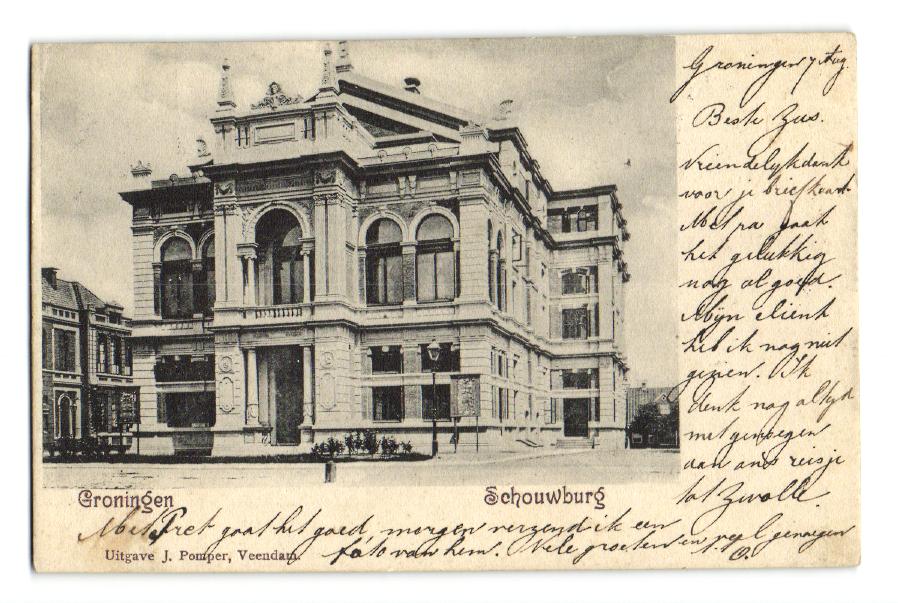 Groningen 7 Aug.
Beste Zus.
Vriendelijk dank
voor je briefkaart
Met pa gaat
het gelukkig
nog al goed.
Mijn cliënt
heb ik nog niet
gezien. Ik
denk nog altijd
met genoegen
aan ons reisje
tot Zwolle.
Groningen Schouwburg
Met gaat het goed, morgen verzend ik een
foto van hem. Vele groeten en veel genoegen
Uitgave J. Pomper, Veendam.